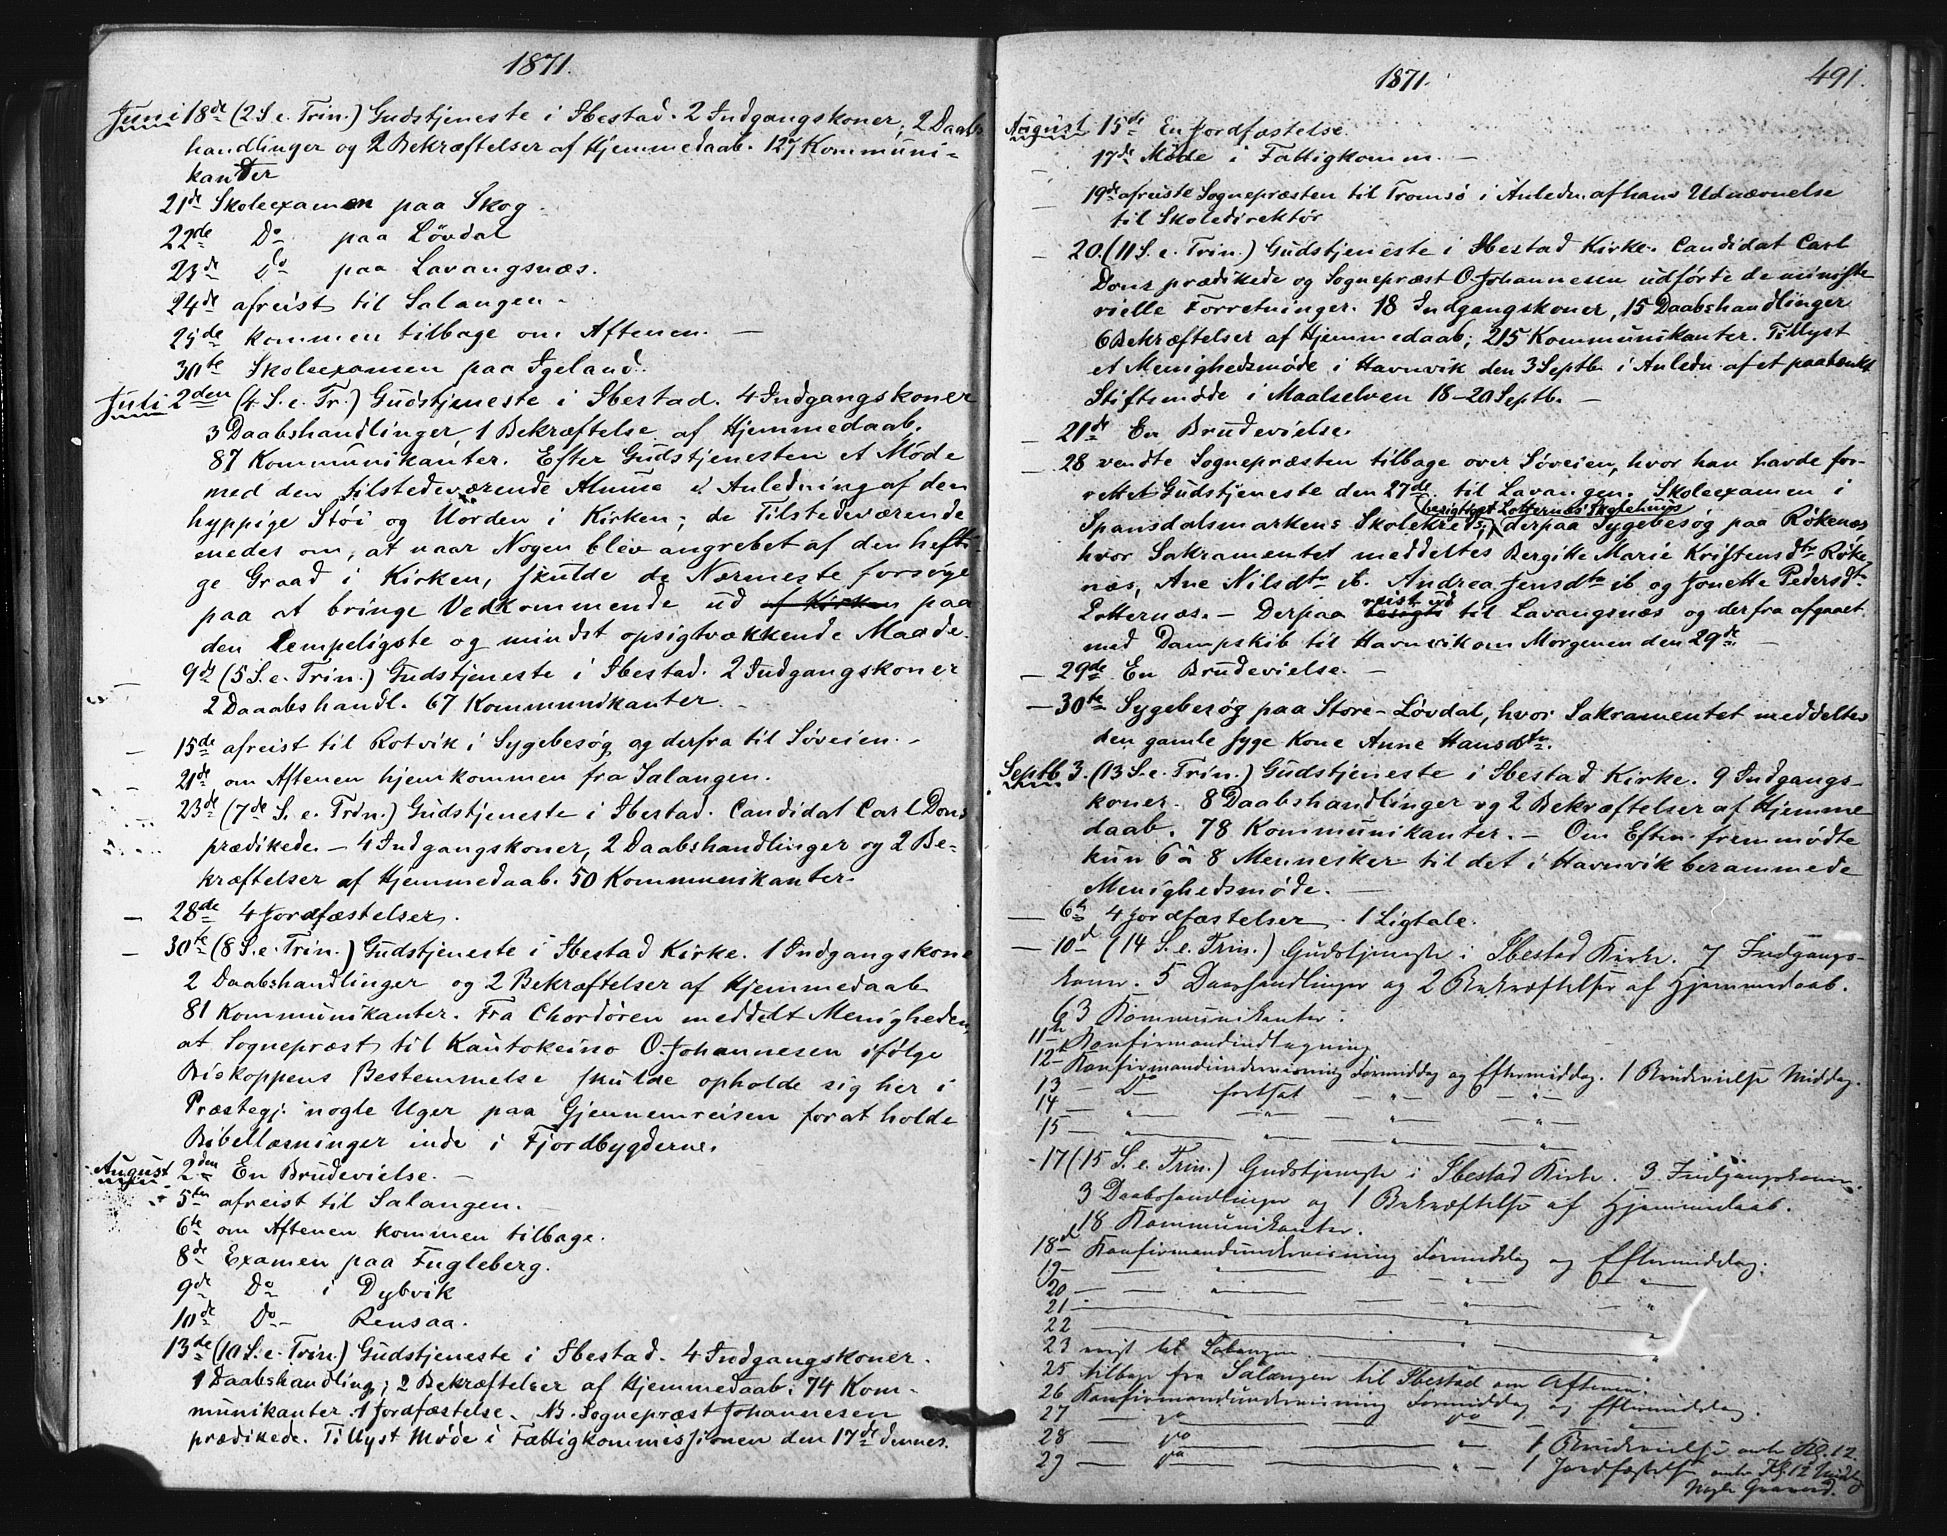 1871.
Juni 18de (2 S. e. Trin.) Gudstjeneste i Ibestad. 2 Indgangskoner, 2 Daabs
handlinger og 2 Bekræftelser af Hjemmedaab. 127 Kommuni-
kanter
21de Skoleexamen paa Skog.
22de Do paa Løvdal
23de Do paa Lavangsnæs.
24de afreist til Salangen.
25de kommen tilbage om Aftenen. —
30te Skoleexamen paa Igeland.
Juli 2den (4. S. e. Tr.) Gudstjeneste i Ibestad. 4 Indgangskoner
3 Daabshandlinger, 1 Bekræftelse af Hjemmedaab.
87 Kommunikanter. Efter Gudstjenesten et Møde
med den tilstedeværende Almue i Anledning af den
hyppige Støi og Uorden i Kirken; de Tilstedeværende
enedes om, at naar Nogen blev angrebet af den hefti-
ge Graad i Kirken, skulde de Nærmeste forsøge
paa at bringe Vedkommende ud af Kirken paa
den lempeligste og mindst opsigtvækkende Maade.
— 9de (5 S. e. Trin.) Gudstjeneste i Ibestad. 2 Indgangskoner
2 Daaabshandl. 67 Kommunikanter. —
— 15de afreist til Rotvik i Sygebesøg og derfra til Søveien. —
— 21de om Aftenen hjemkommen fra Salangen.
— 23de (7de S. e. Trin.) Gudstjeneste i Ibestad. Candidat Carl Dons
prædikede. — 4 Indgangskoner, 2 Daabshandlinger og 2 Be-
kræftelser af Hjemmedaab. 50 Kommunikanter.
— 28de 4 Jordfæstelser.
— 30te (8 S. e. Trin.) Gudstjeneste i Ibestad Kirke. 1 Indgangskone
2 Daabshandlinger og 2 Bekræftelser af Hjemmedaab
81 Kommunikanter. Fra Chordøren meddelt Menigheden,
at Sognepræst til Kautokeino O. Johannesen ifølge
Biskoppens Bestemmelse skulde opholde sig her i
Præstegj. nogle Uger paa Gjennemreisen for at holde
Bibellæsninger inde i Fjordbygderne.
August 2den En Brudevielse. —
5te afreist til Salangen.
6te om Aftenen kommen tilbage.
8de Examen paa Fugleberg.
9de Do i Dybvik
10de Do — Rensaa.
13de (10 S. e. Trin.) Gudstjeneste i Ibestad. 4 Indgangskoner.
1 Daabshandling; 2 Bekræftelser af Hjemmedaab. 74 Kom-
munikanter. 1 Jordfæstelse. NB. Sognepræst Johannesen
prædikede. Tillyst Møde i Fattigkommissionen den 17de dennes.
1871.
491.
August 15de En Jordfæstelse.
— 17de Møde i Fattigkomm. —
— 19de afreiste Sognepræsten til Tromsø i Anledn. af hans Udnævnelse
til Skoledirektør
— 20. (11 S. e. Trin.) Gudstjeneste i Ibestad Kirke. Candidat Carl
Dons prædikede og Sognepræst O. Johannesen udførte de ministe
rielle Forretninger. 18 Indgangskoner, 15 Daabshandlinger
6 Bekræftelser af Hjemmedaab; 215 Kommunikanter. Tillyst
et Menighedsmøde i Havnvik den 3 Septb. i Anledn. af et paatænkt
Stiftsmøde i Maalselven 18-20 Septb. —
— 21de En Brudevielse.
— 28 vendte Sognepræsten tilbage over Søveien, hvor han havde for-
rettet Gudstjeneste den 27de til Lavangen. Skoleexamen i
besigtiget Lotternæs Skolehuus
Spansdalsmarkens Skolekreds; derpaa Sygebesøg paa Røkenæs
hvor Sakramentet meddeltes Bergitte Marie Kristensdtr Røke
næs, Ane Nilsdtr ib. Andrea Jensdtr ib og Jonette Pedersdtr
reist ud
Lotternæs. — Derpaa til Lavangsnæs og derfra afgaaet
med Dampskib til Havnvik om Morgenen den 29de. —
— 29de En Brudevielse. —
— 30te Sygebesøg paa Store-Løvdal, hvor Sakramentet meddeltes
den gamle syge Kone Anne Hansdtr.
Septb 3. (13 S. e. Trin.) Gudstjeneste i Ibestad Kirke. 9 Indgangs-
koner. 8 Daabshandlinger og 2 Bekræftelser af Hjemme
daab. 78 Kommunikanter. — Om Eftm. fremmødte
kun 6 à 8 Mennesker til det i Havnvik berammede
Menighedsmøde. —
— 6te 4 Jordfæstelser. 1 Ligtale.
— 10d (14 S. e. Trin.) Gudstjeneste i Ibestad Kirke. 7 Indgangs-
koner. 5 Daabshandlinger og 2 Bekræftelser af Hjemmedaab.
63 Kommunikanter.
11te Konfirmandindtagning
12te Konfirmandundervisning Formiddag og Eftermiddag. 1 Brudevielse Middag.
13 — Do — fortsat — " — — " —
14 — " — — " — — " — — " —
15 — " — — " — — " — — " —
-17 (15 S. e. Trin.) Gudstjeneste i Ibestad Kirke. 3 Indgangskoner.
3 Daabshandlinger og 1 Bekræftelse af Hjemmedaab.
18 Kommunikanter.
18d Konfirmandundervisning Formiddag og Eftermiddag.
19 — — " — — " — — " —
20 — — " — — " — — " —
21 — — " — "
22 — — " — "
23 reist til Salangen. — " — "
25 tilbage fra Salangen til Ibestad om Aftenen.
26 Konfirmandundervisning Formiddag og Eftermiddag.
27 — Do — Do —
28 — Do — " — 1 Brudevielse Kl. 12.
29 — Do — " — 1 Jordfæstelse Kl. 12 Midd